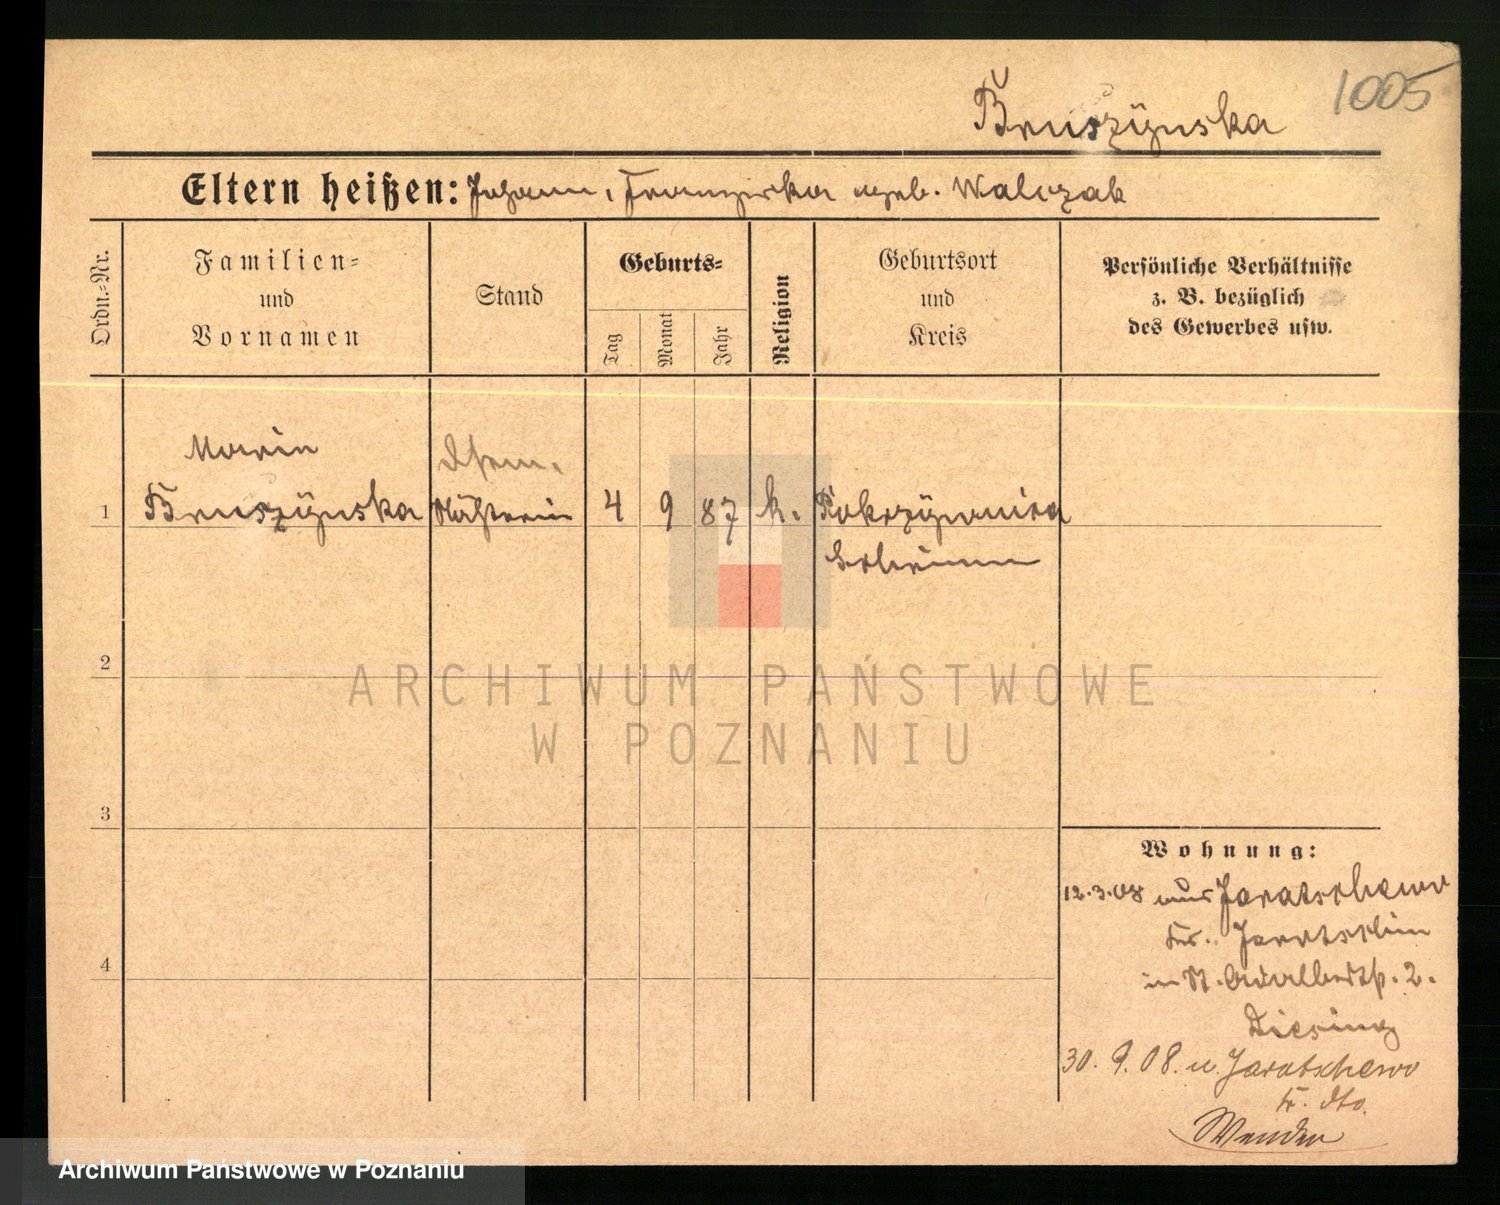 1005
Bruszÿnska
Eltern heißen: Johann, Franziska geb. Walczak
Ordn.-Nr.
Familien-
und
Vornamen
Stand
Geburts-
Tag
Monat
Jahr
Religion
Geburtsort
und
Kreis
Persönliche Verhältnisse
z. B. bezüglich
des Gewerbes usw.
Marie
1 Bruszÿnska Näherin 4 9 87 k. Pokrzÿwnica
Schrimm
2
3
4
Wohnung:
12.3.08 aus Jaratschewo
Kr. Jarotschin
in St. Adalbertstr. 2.
30. 9. 08. n. Jaratschewo
Kr. dto.
ARCHIWUM PAŃSTWOWE
W POZNANIU
Archiwum Państwowe w Poznaniu